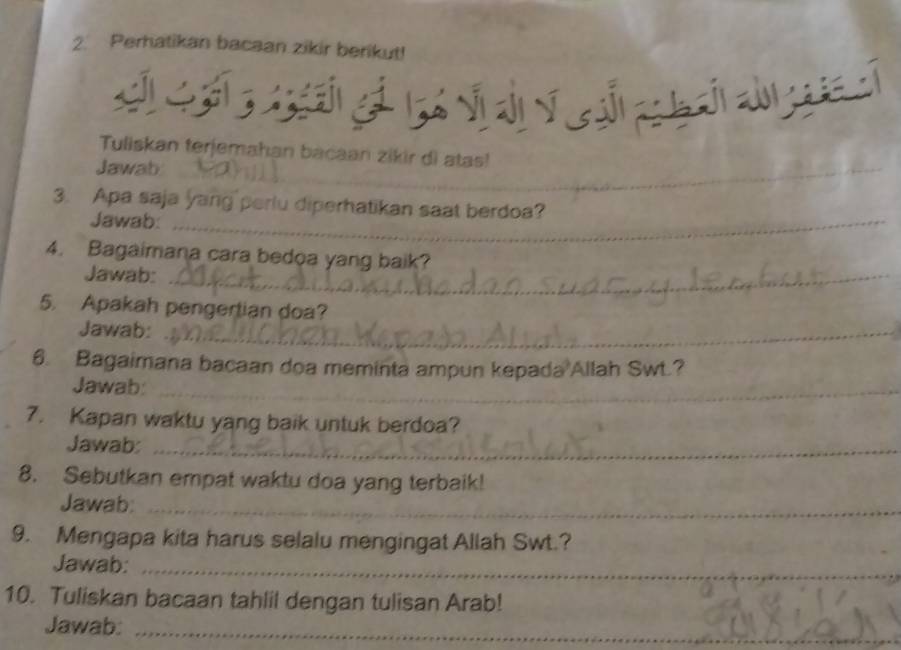 2. Perhatikan bacaan zikir berikut!
أَسْتَغْفِرُ اللهَ الْعَظِيْمَ الَّذِى لَا إِلٰهَ إِلَّا هُوَ الْحَيُّ الْقَيُّوْمُ وَ أَتُوْبُ إِلَيْهِ
Tuliskan terjemahan bacaan zikir di atas!
Jawab:
3. Apa saja yang perlu diperhatikan saat berdoa?
Jawab:
4. Bagaimana cara bedoa yang baik?
Jawab:
5. Apakah pengertian doa?
Jawab: Allah
6. Bagaimana bacaan doa meminta ampun kepada Allah Swt.?
Jawab:
7. Kapan waktu yang baik untuk berdoa?
Jawab:
8. Sebutkan empat waktu doa yang terbaik!
Jawab:
9. Mengapa kita harus selalu mengingat Allah Swt.?
Jawab:
10. Tuliskan bacaan tahlil dengan tulisan Arab!
Jawab: